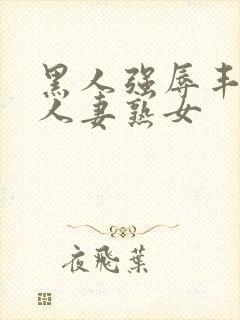 黑人强辱丰
人妻熟女
夜飛葉